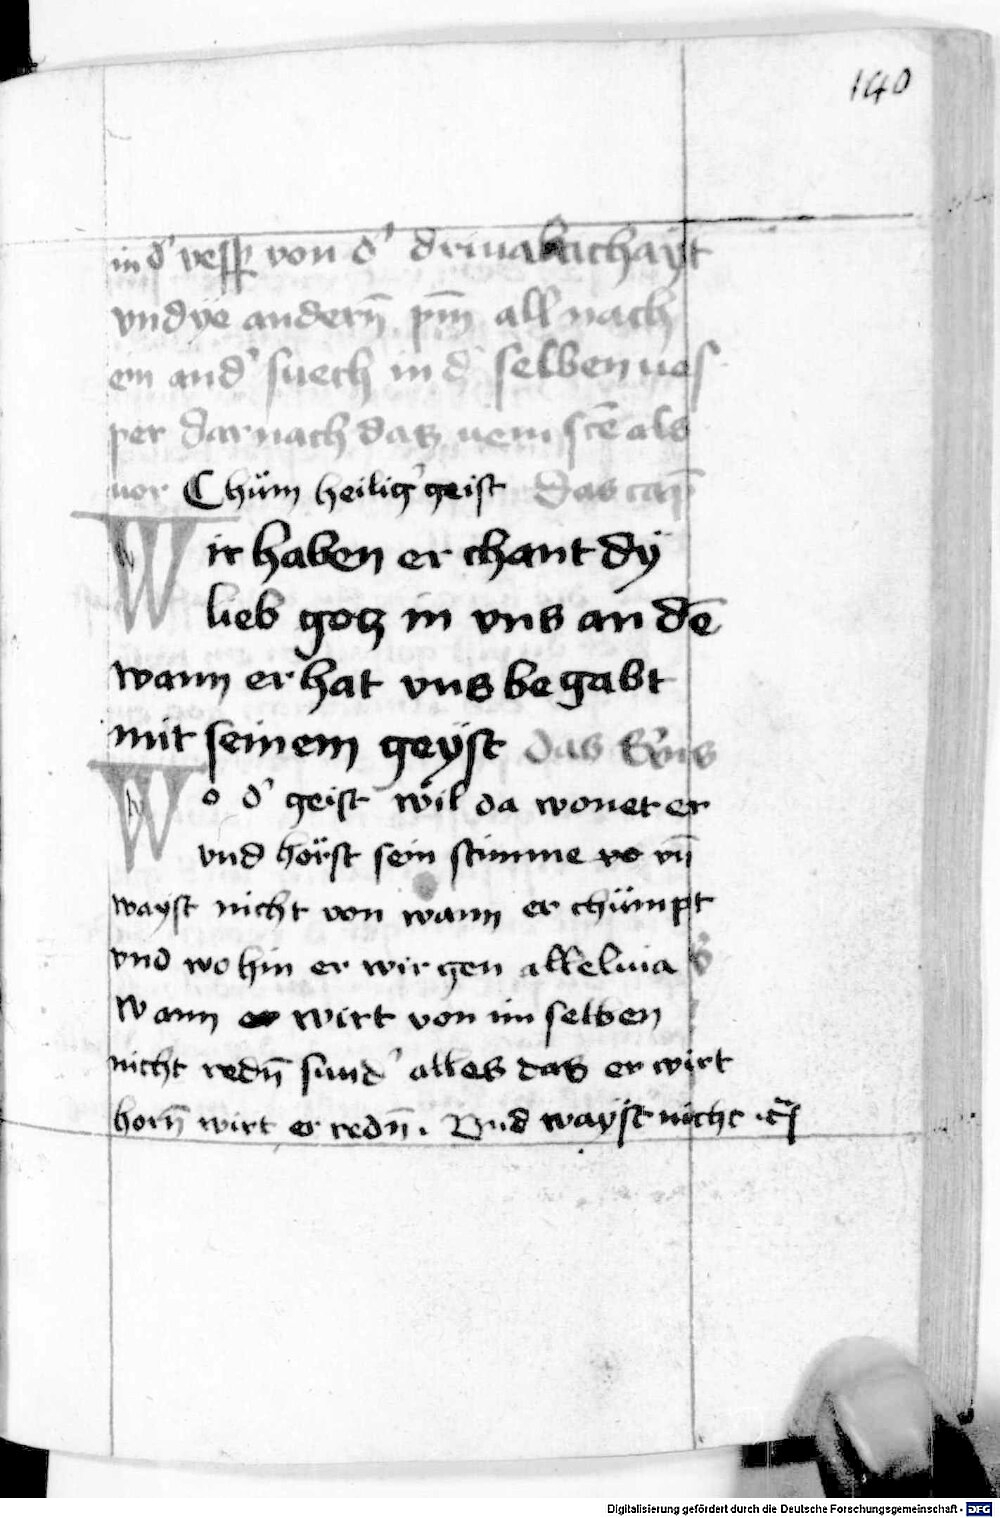 140
in d' vesp von d' drivaltichayt
vnd ÿe andern̄ pm̄ all nach
ein and' suech in d' selben ues
per dar nach daz uem scē als
uor Chüm heilig' geist Das cap̄
Wir haben er chant dÿ
lieb gotz in vns an dē
wann er hat vns be gabt
mit seinem geÿst das
Wo d' geist wil da wonet er
vnd hörst sein stimme vn̄
wayst nicht von wann er chümpt
vnd wo hin er wir gen alleluia
Wann er wirt von im selben
nicht redn̄ sund' alles das er wirt
horn̄ wirt er redn̄. Vnd wayst nicht
Digitalisierung gefördert durch die Deutsche Forschungsgemeinschaft - DFG